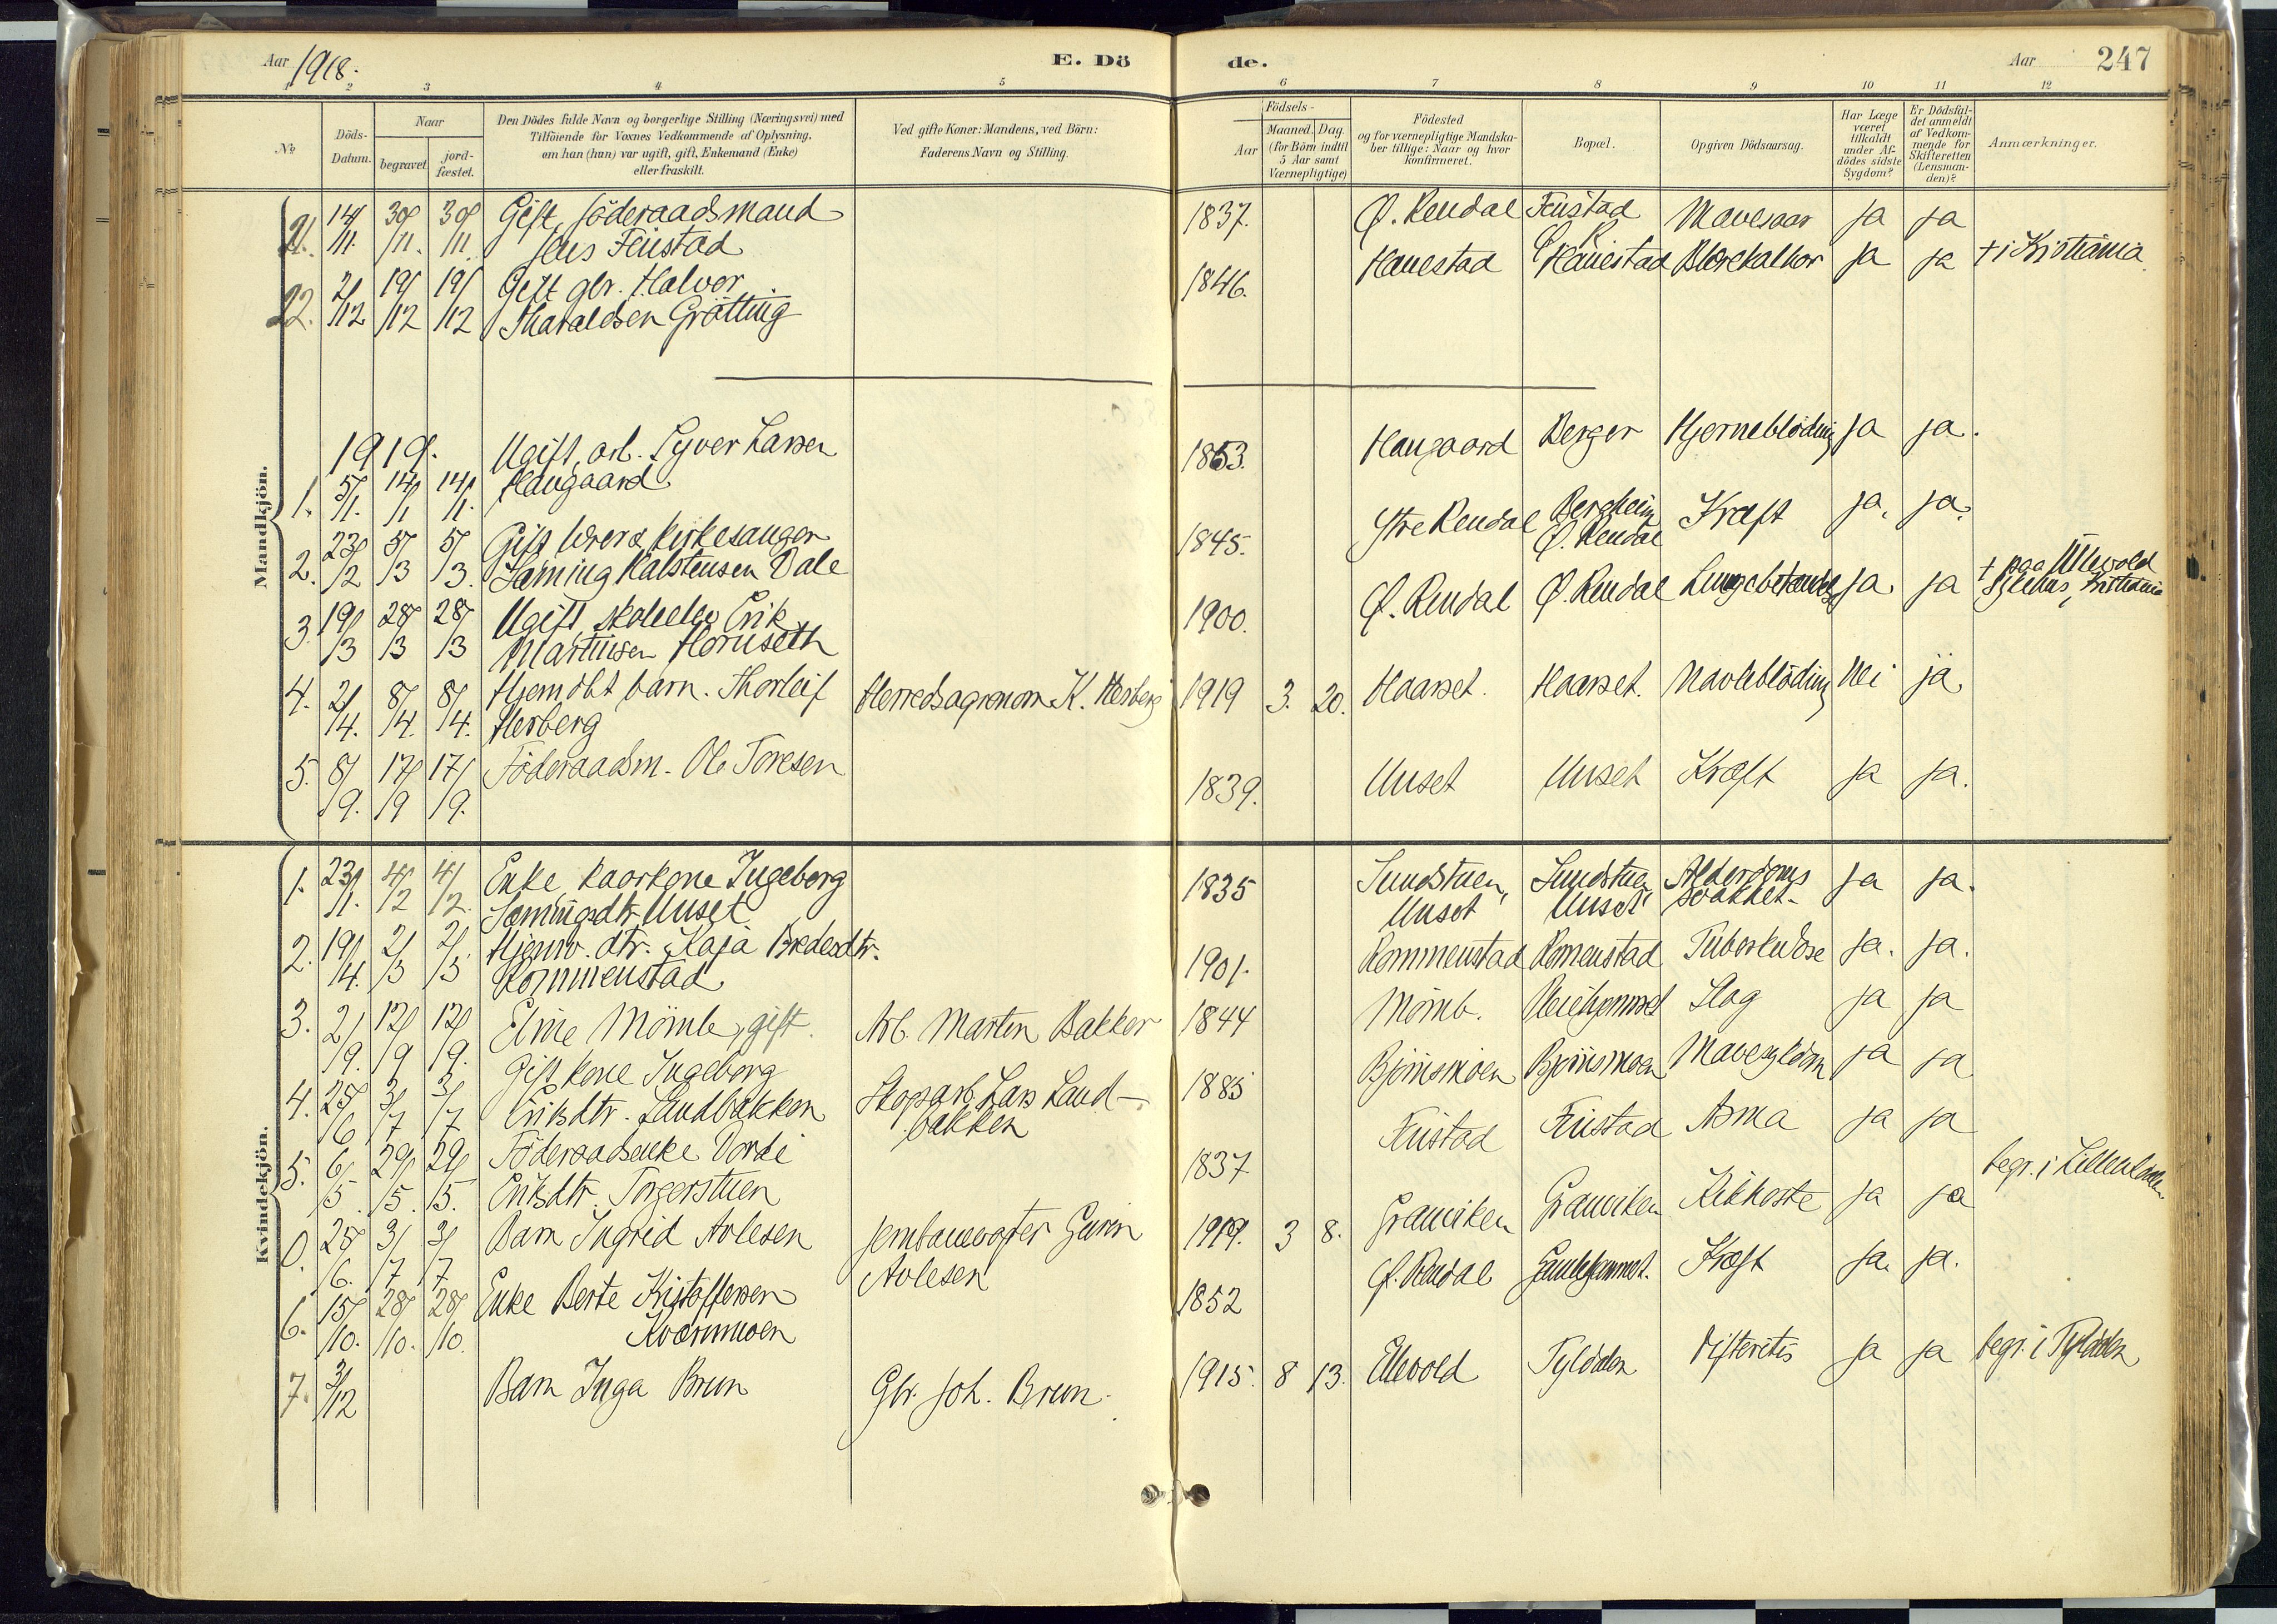 Aar 1918.
E. Döde.
Aar 247
1 2 3 4 5 6 7 8 9 10 11 12
No
Döds-Datum.
Naar
begravet.
jord-fæstet.
Den Dödes fulde Navn og borgerlige Stilling (Næringsvei) med
Tilföiende for Voxnes Vedkommende af Oplysning,
om han (hun) var ugift, gift, Enkemand (Enke)
eller fraskilt.
Ved gifte Koner: Mandens, ved Börn:
Faderens Navn og Stilling.
Födsels-
Aar
Maaned. Dag.
(for Börn indtil
5 Aar samt
Værnepligtige)
Födested
og for værnepligtige Mandska-
ber tillige: Naar og hvor
konfirmeret.
Bopæl.
Opgiven Dödsaarsag.
Har Læge
været
tilkaldt
under Af-
dödes sidste
Sygdom?
Er Dödsfal-
det anmeldt
af Vedkom-
mende for
Skifteretten
(Lensman-
den)?
Anmærkninger.
Mandkjön.
21. 14/11. 30/11. 30/11. Gift, föderaadsmand 1837. Ø. Rendal Finstad Mavesaar ja ja
Jens Finstad
22. 2/12 19/12 19/12 Gift gbr. Halvor 1846. Hanestad Hanestad Blærekatharr ja ja + i Kristiania
Haraldsen Grötting
1919.
1. 5/1. 14/1 14/1. Ugift, arb. Syver Larsen 1853. Haugaard Berger Hjerneblödning ja ja.
Haugaard
2. 23/2 5/3 5/3. Gift lærer & kirkesanger 1845. Ytre Rendal Bergheim Kræft ja. ja.
Ø. Rendal
Sæming Halstensen Dale
3. 19/3 28/3 28/3 Ugift skoleelev Erik 1900. Ø. Rendal Ø. Rendal Lungebetændelse ja. ja + paa Ullevold
Sykehus, Kristiania
Martinsen Hornseth
4. 2/4. 8/4. 8/4. Hjemdöbt barn. Thorleif Herredsagronom K. Herberg 1919 3. 20. Haarset. Haarset. Navleblödning Nei ja
Herberg
5. 8/9. 17/9 17/9. Föderaadsm. Ole Toresen 1839. Unset Unset Kræft ja ja.
Kvindekjön.
1. 23/1. 4/2 4/2. Enke kaarkone Ingeborg 1835 Sundstuen, Sundstuen Alderdoms ja ja.
Sæmingsdtr. Unset Unset Unset svakhet.
2. 19/4. 2/5 2/5 Hjemv. dtr. Kaja Bredesdtr. 1901. Rommenstad Romenstad Tuberkulose ja. ja.
Rommenstad
3. 2/9. 12/9 12/9. Eline Mömb, gift. Arb. Martin Bakken 1844 Mömb. Slag ja ja
4. 25/6 3/7 3/7 Gift kone Ingeborg Skogarb. Lars Land- 1885 Björnsmoen Björnsmoen Mavesykdom ja ja
Eriksdtr. Landbakken bakken
5. 6/5. 29/5. 29/5. Föderaadsenke Dordi 1837 Finstad Finstad Asma ja ja
Eriksdtr. Torgerstuen
0. 25/6. 3/7 3/7 Barn Ingrid Avlesen Jernbanevogter 1919. 3 8. Granviken Granviken Kikhoste ja ja begr. i Lilleelvdalen
Avlesen
6. 15/10. 28/10. 28/10. Enke Berte Kristoffersen 1852 Ø. Rendal Kræft ja. ja.
Kværnmoen
7. 3/12 Barn Inga Brun Gbr. Joh. Brun. 1915. 8 13. Ellevold Tyldalen Difteritis ja ja begr. i Tyldalen